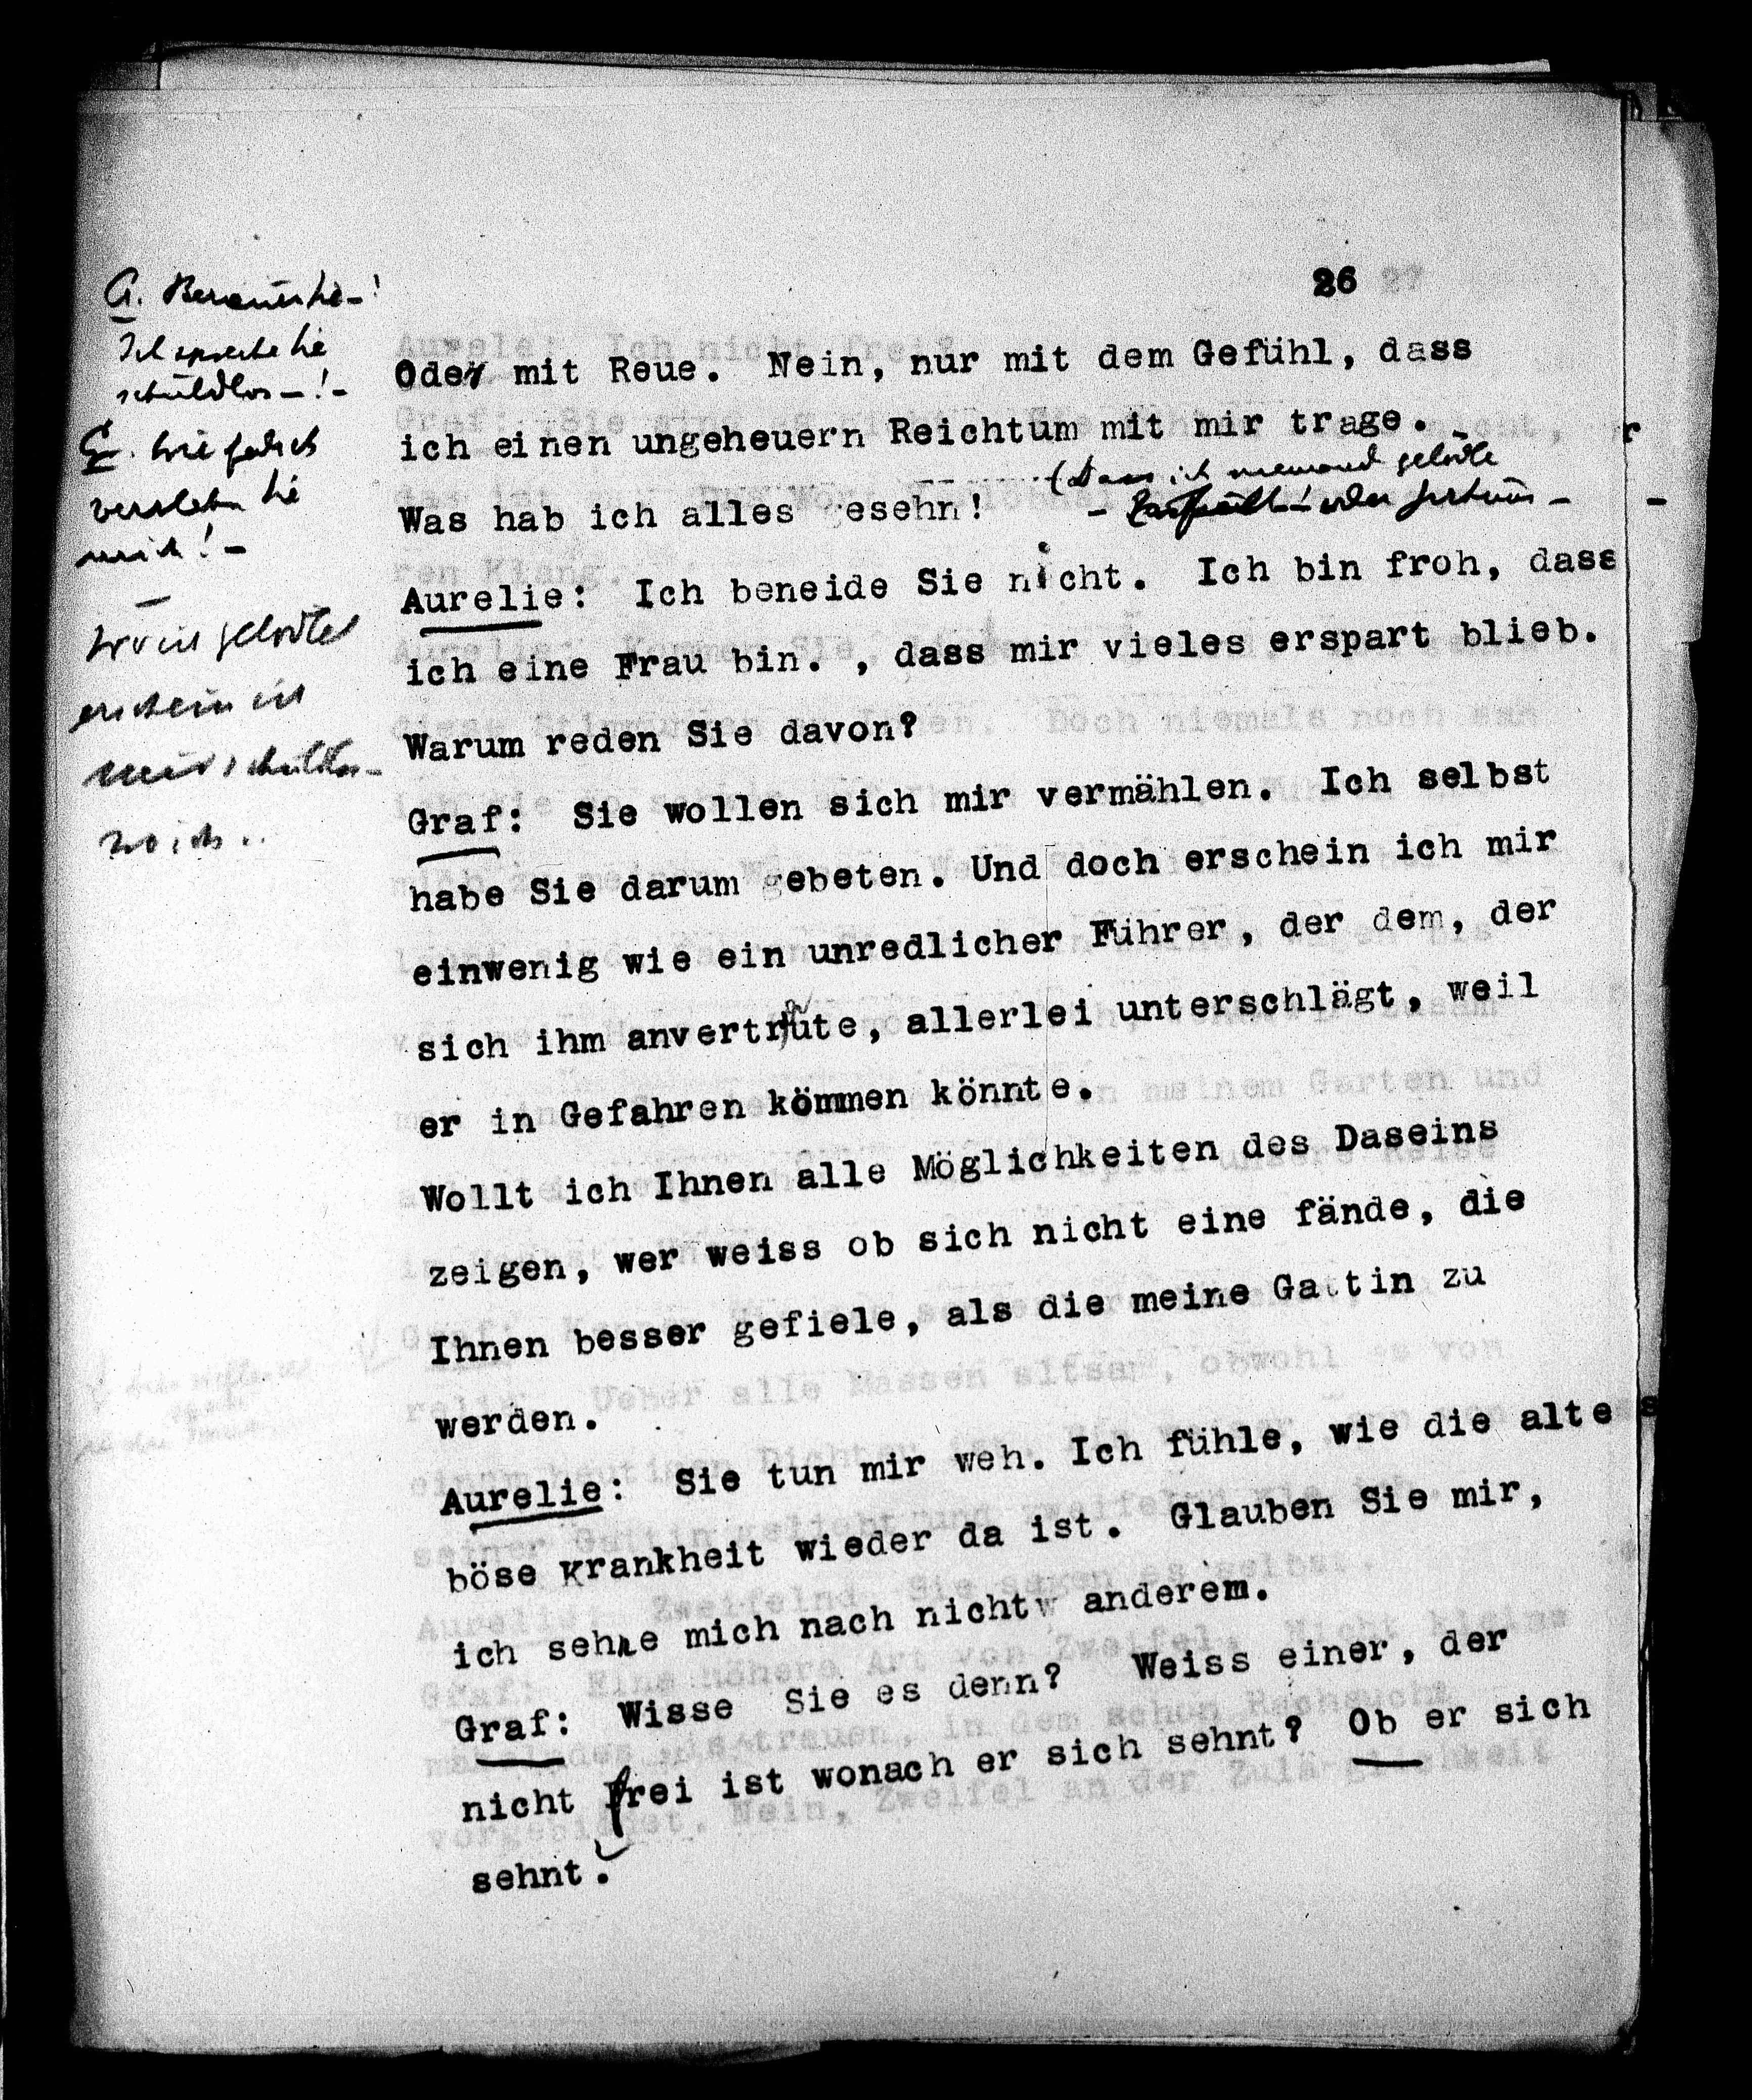 26
Oder mit Reue. Nein, nur mit dem Gefühl, dass
ich einen ungeheuern Reichtum mit mir trage.
(Dass ich niemand getödte
Was hab ich alles gesehn!
oder
Aurelie: Ich beneide Sie nicht. Ich bin froh, dass
ich eine Frau bin. , dass mir vieles erspart blieb.
Warum reden Sie davon?
Graf: Sie wollen sich mir vermählen. Ich selbst
habe Sie darum gebeten. Und doch erschein ich mir
einwenig wie ein unredlicher Führer, der dem, der
sich ihm anvertraute, allerlei unterschlägt, weil
er in Gefahren kömmen könnte.
Wollt ich Ihnen alle Möglichkeiten des Daseins
zeigen, wer weiss ob sich nicht eine fände, die
Ihnen besser gefiele, als die meine Gattin zu
werden.
Aurelie: Sie tun mir weh. Ich fühle, wie die alte
böse Krankheit wieder da ist. Glauben Sie mir,
ich sehne mich nach nichtw anderem.
Graf: Wisse Sie es denn? Weiss einer, der
nicht frei ist wonach er sich sehnt? Ob er sich
sehnt.
A.
Ich spreche Sie
schuldlos –! –
G. Wie falsch
verstehn Sie
mich! –
Wo ich getödtet
erschein ich
mir schuldlos –
wo ich ..